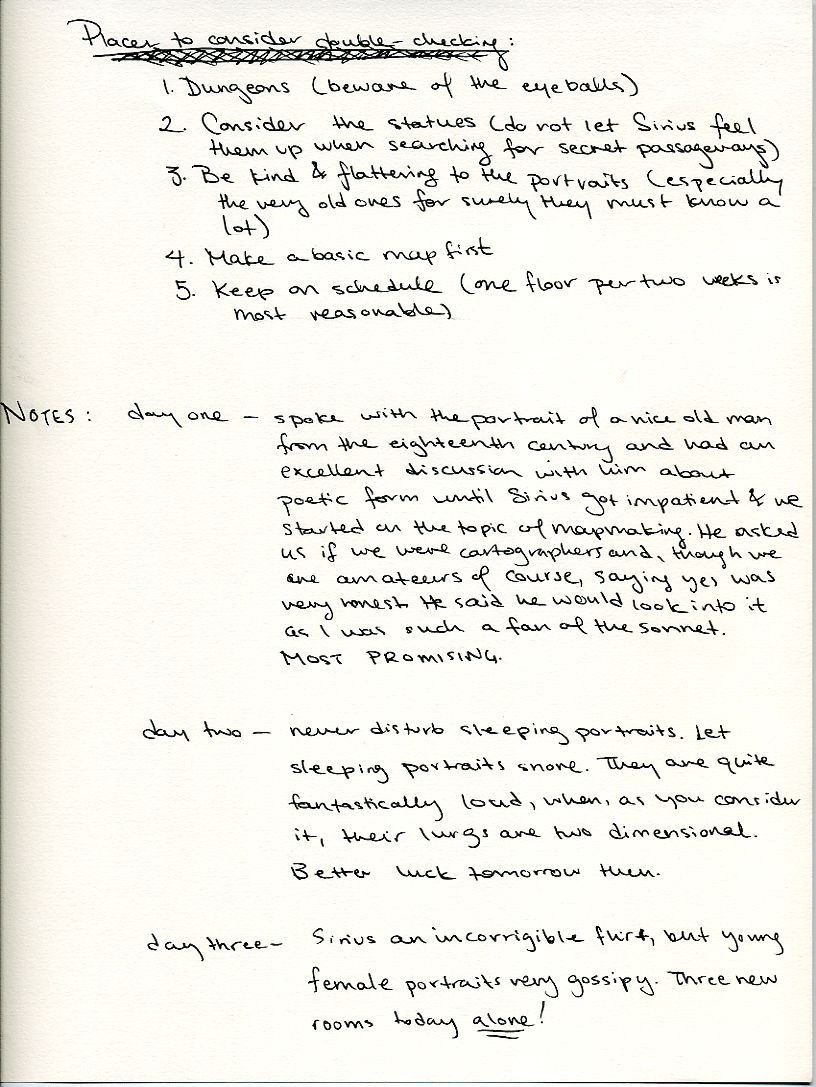 Places to consider double-checking:
1. Dungeons (beware of the eyeballs)
2. Consider the statues (do not let Sirius feel
them up when searching for secret passageways)
3. Be kind & flattering to the portraits (especially
the very old ones for surely they must know a
lot)
4. Make a basic map first
5. Keep on schedule (one floor per two weeks is
most reasonable)
NOTES: day one – spoke with the portrait of a nice old man
from the eighteenth century and had an
excellent discussion with him about
poetic form until Sirius got impatient & we
started on the topic of mapmaking. He asked
us if we were cartographers and, though we
are amateurs of course, saying yes was
very honest. He said he would look into it
as I was such a fan of the sonnet.
MOST PROMISING.
day two – never disturb sleeping portraits. Let
sleeping portraits snore. They are quite
fantastically loud, when, as you consider
it, their lungs are two dimensional.
Better luck tomorrow then.
day three – Sirius an incorrigible flirt, but young
female portraits very gossipy. Three new
rooms today alone!